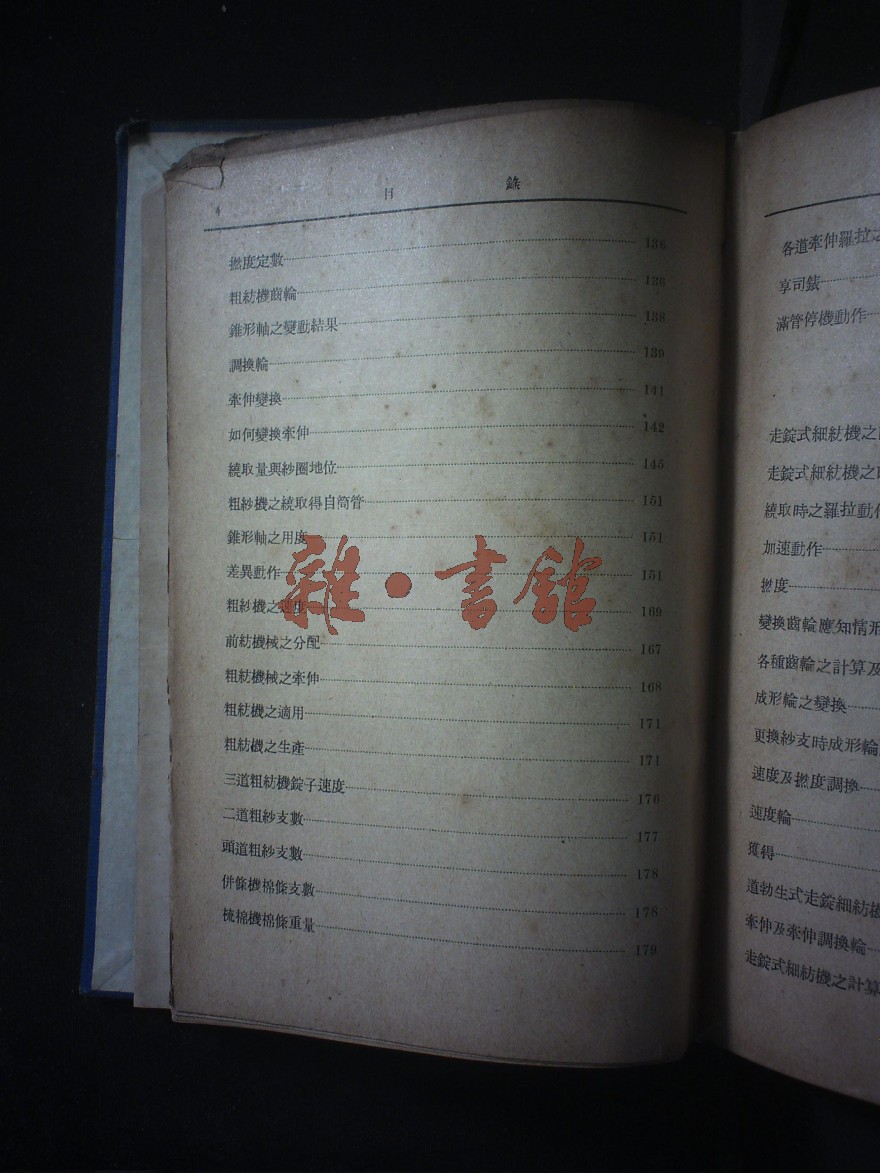 目 錄
4
撚度定數 136
粗紡機齒輪 136
錐形軸之變動結果 138
調換輪 139
牽伸變換 141
如何變換牽伸 142
繞取量與紗圈地位 145
粗紗機之繞取得自筒管 151
錐形軸之用度 151
差異動作 151
粗紗機之速度 169
前紡機械之分配 167
粗紡機械之牽伸 168
粗紡機之適用 171
粗紡機之生產 171
三道粗紡機錠子速度 176
二道粗紗支數 177
頭道粗紗支數 178
併條機棉條支數 178
梳棉機棉條重量 179
雜·書館
各道牽伸羅拉之
享司錶
滿管停機動作
走錠式細紡機之
走錠式細紡機之
繞取時之羅拉動作
加速動作
撚度
變換齒輪應知情形
各種齒輪之計算及
成形輪之變換
更換紗支時成形輪
速度及撚度調換
速度輪
獲得
道勃生式走錠細紡機
牽伸及牽伸調換輪
走錠式細紡機之計算